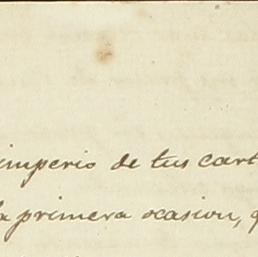 imperio de tus cart
la primera ocasion, q